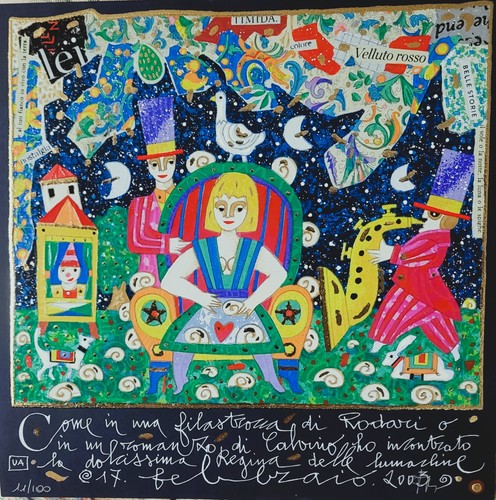 TIMIDA.
colore
Velluto rosso
BELLE STORIE
nostalgia
Come in una filastrocca di Rodari o
in un romanzo di Calvino, ho incontrato
la dolcissima Regina delle lumachine
@ 17. febbraio.
UA
11/100